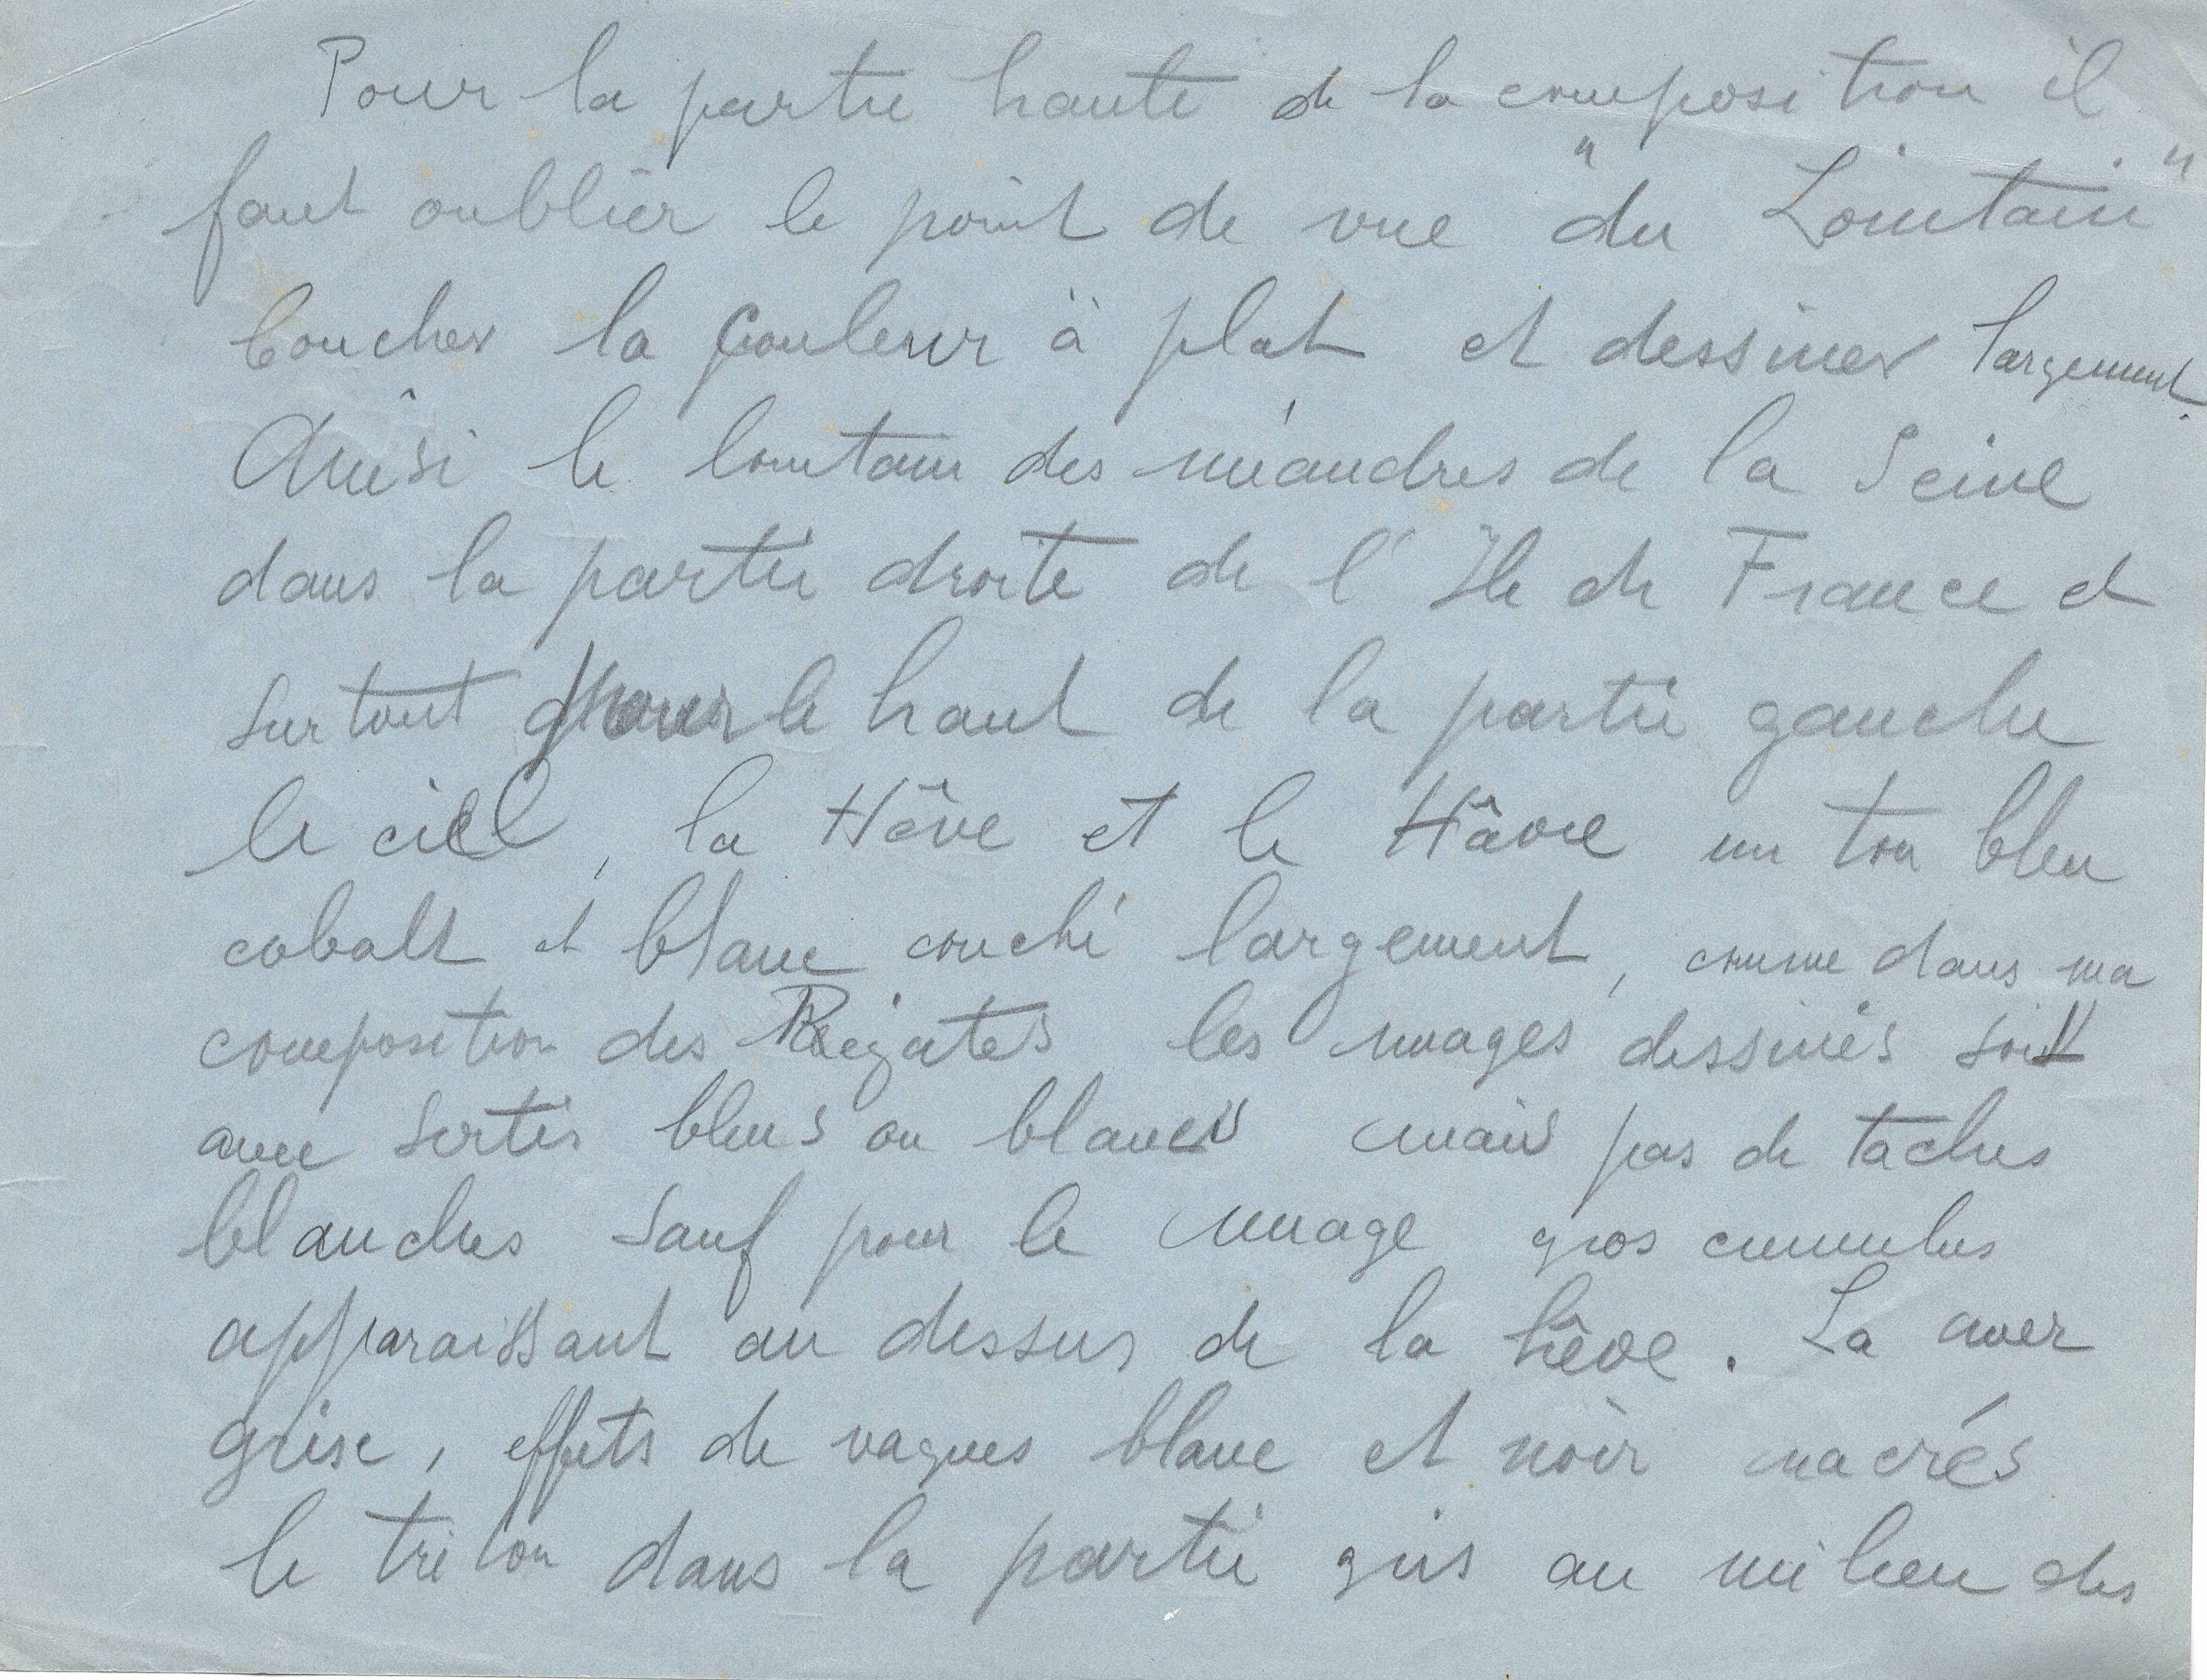 Pour la partie haute de la composition il
faut oublier le point de vue "du Lointain"
coucher la couleur à plat et dessiner largement.
Ainsi le lointain des méandres de la Seine
dans la partie droite de l'Ile de France et
surtout pour le haut de la partie gauche
le ciel, la Hève et le Hâvre un ton bleu
cobalt et blanc couché largement, comme dans ma
composition des Régates les nuages dessinés soit
avec sertis bleus ou blancs mais pas de taches
blanches sauf pour le nuage gros cumulus
apparaissant au dessus de la hève. La mer
grise, effets de vagues blanc et noir nacrés
le triton dans la partie gris au milieu des